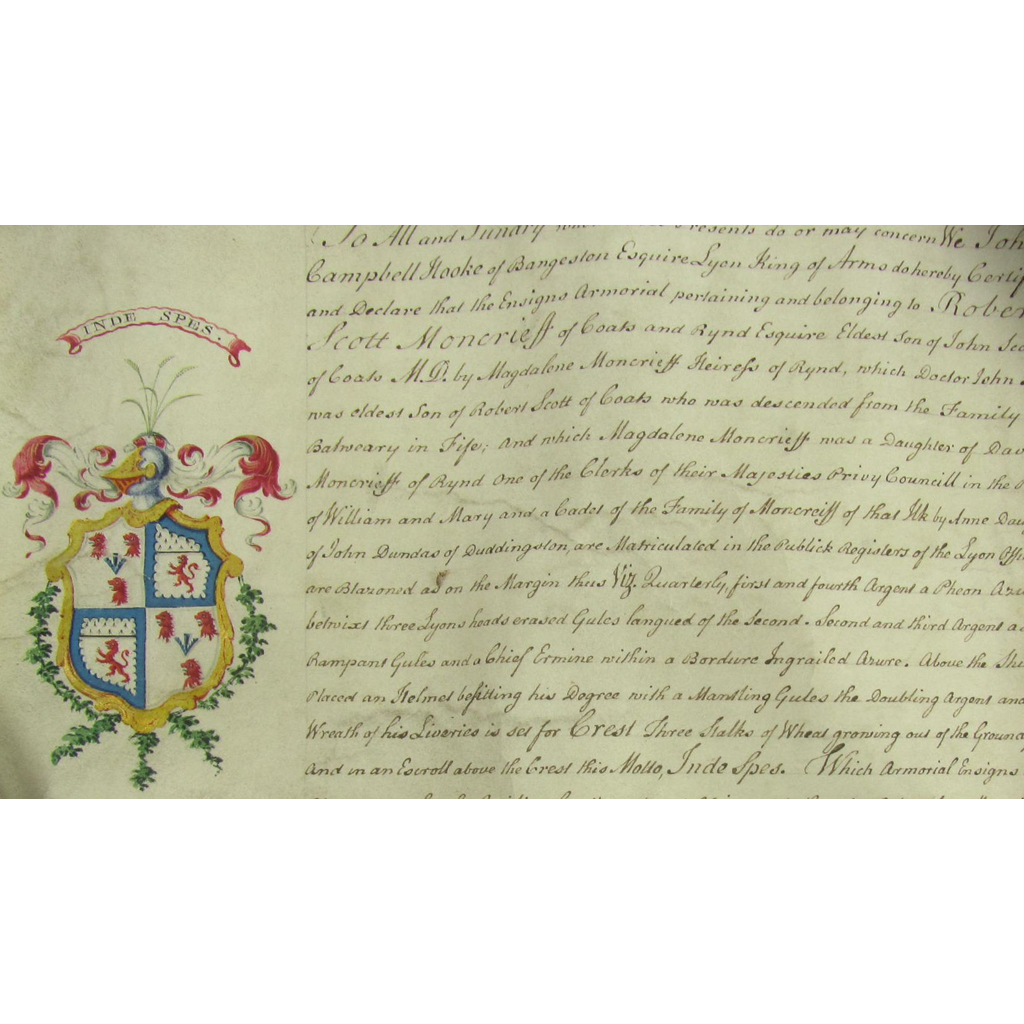 INDE SPES.
To All and Sundry presents do or may concern We Joh
Campbell Hooke of Bangeston Esquire Lyon King of Arms do hereby Certif
and Declare that the Ensigns Armorial pertaining and belonging to Rober
Scott Moncrieff of Coats and Rynd Esquire Eldest Son of John Sco
of Coats M.D. by Magdalene Moncrieff Heiress of Rynd, which Doctor John
was eldest Son of Robert Scott of Coats who was descended from the Family
Balweary in Fife; and which Magdalene Moncrieff was a Daughter of Dav
Moncrieff of Rynd one of the Clerks of their Majesties Privy Councill in the
of William and Mary and a Cadet of the Family of Moncreiff of that Ilk by Anne Dau
of John Dundas of Duddingston, are Matriculated in the Publick Registers of the Lyon Offi
are Blazoned as on the Margin thus Viz. Quarterly, first and fourth Argent a Pheon Azu
betwixt three Lyons heads erased Gules langued of the Second. Second and third Argent a
Rampant Gules and a Chief Ermine within a Bordure Ingrailed Azure. Above the Shi
Placed an Helmet befitting his Degree with a Mantling Gules the Doubling Argent and
Wreath of his Liveries is set for Crest Three Stalks of Wheat growing out of the Ground
And in an Escroll above the Crest this Motto, Inde Spes. Which Armorial Ensigns